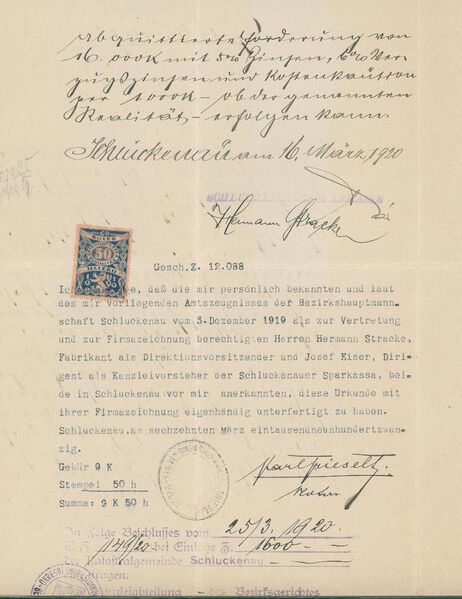 Abquittierte Forderung von
16.000K mit 5% Zinsen, 6% Ver-
zugszinsen und Kostenkaution
per 1000K – ob der genannten
Realität – erfolgen kann.
Schluckenau am 16. März 1920
Hermann Stracke
50
Gesch.Z. 12.088
daß die mir persönlich bekannten und laut
des mir vorliegenden Amtszeugnisses der Bezirkshauptmann-
schaft Schluckenau vom 3.Dezember 1919 als zur Vertretung
und zur Firmazeichnung berechtigten Herren Hermann Stracke,
Fabrikant als Direktionsvorsitzender und Josef Eiser, Diri-
gent als Kanzleivorsteher der Schluckenauer Sparkassa, bei-
de in Schluckenau vor mir anerkannten, diese Urkunde mit
ihrer Firmazeichnung eigenhändig unterfertigt zu haben.
Schluckenau,am sechzehnten März eintausendneunhundertzwan-
zig.
Gebür 9 K
Stempel 50 h
Summa: 9 K 50 h
Notar
In Folge Beschlusses vom 25/3. 1920.
149/20 bei Einlage Z. 1600
der Katastralgemeinde Schluckenau
des Bezirksgerichtes